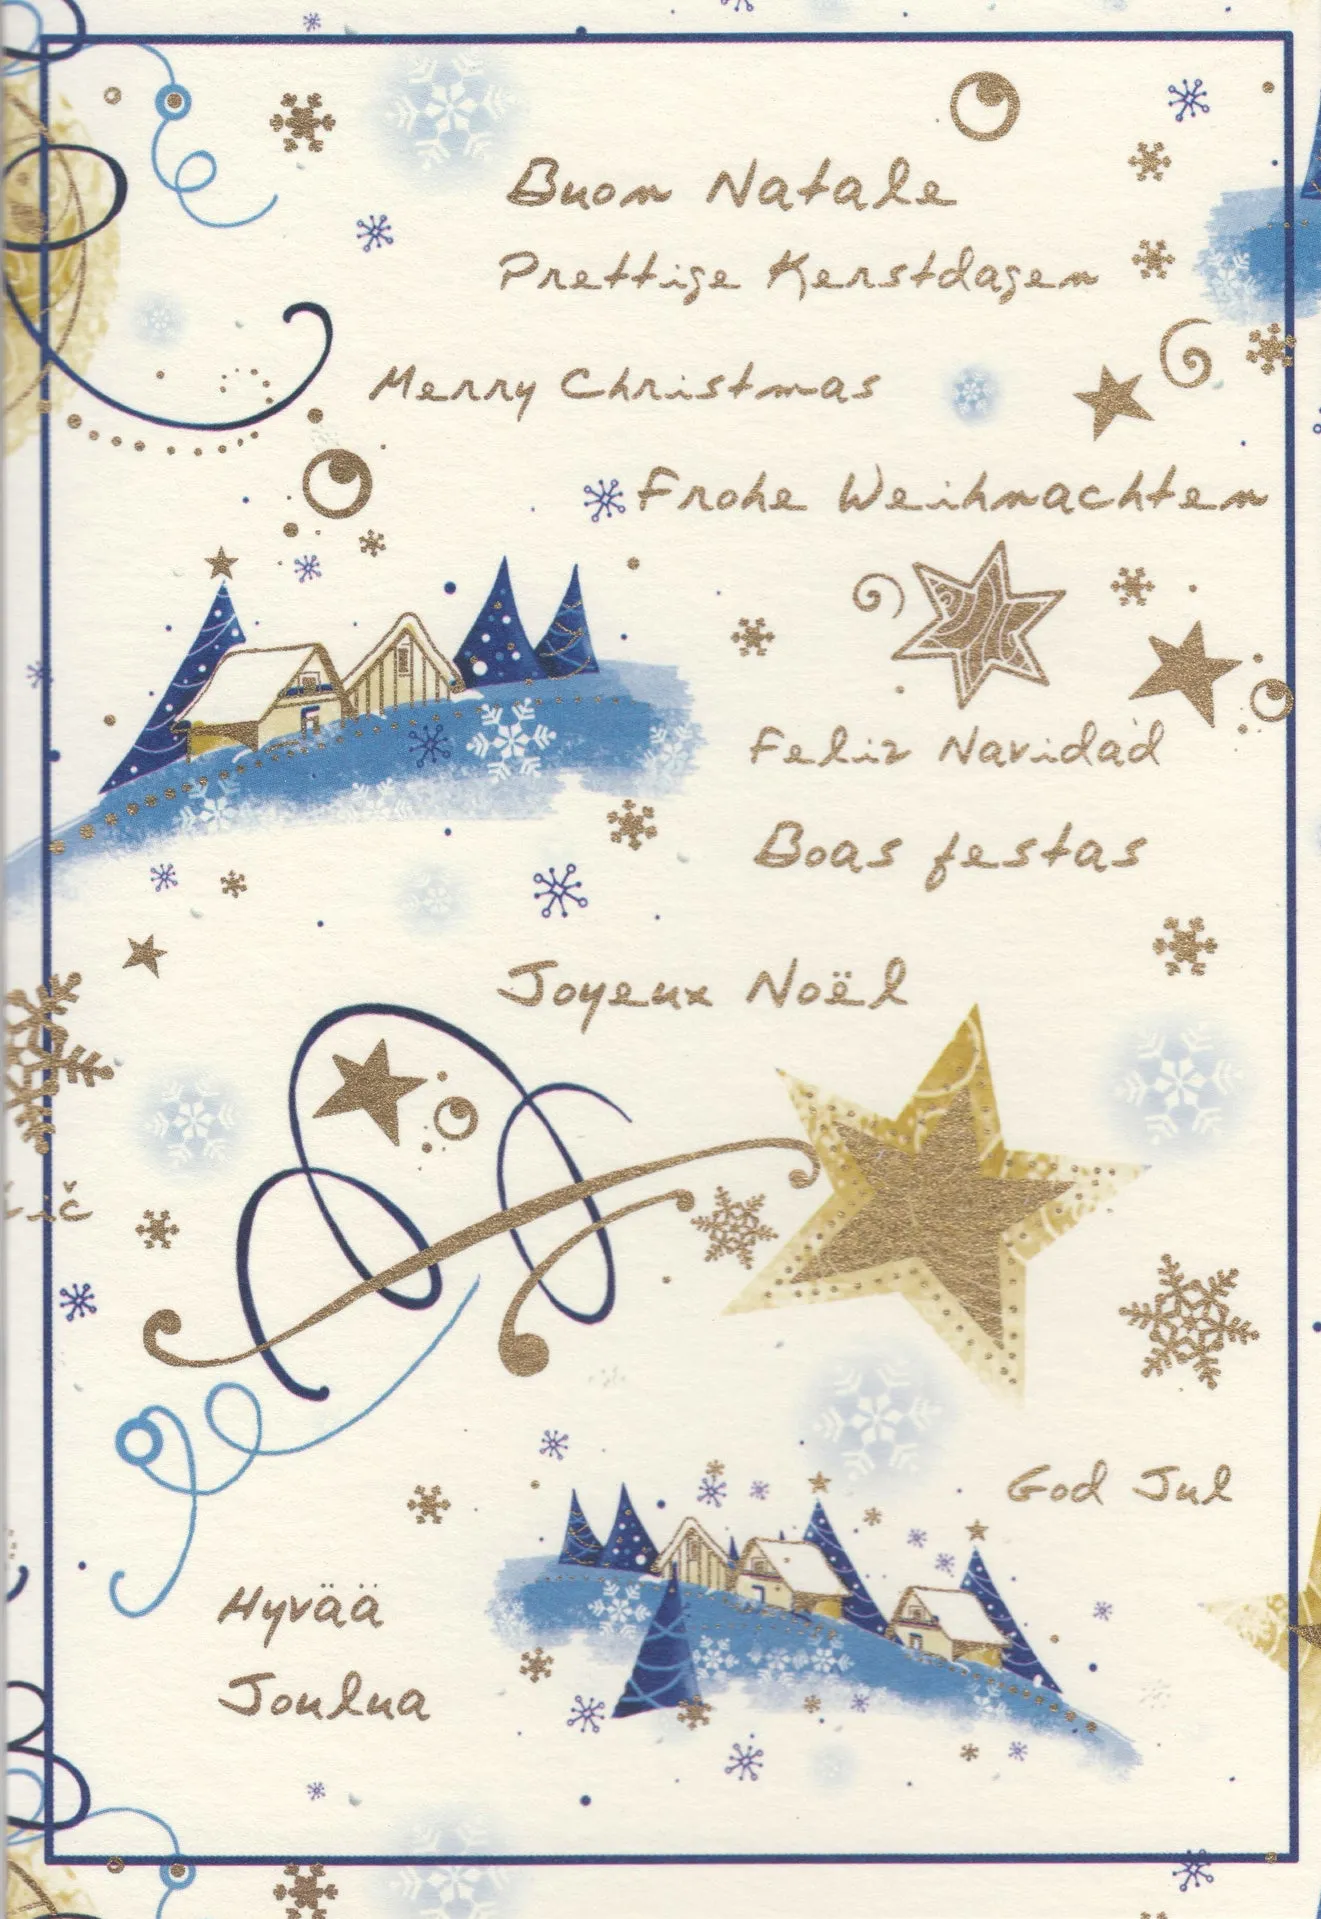 Buon Natale
Prettige Kerstdagen
Merry Christmas
Frohe Weihnachten
Feliz Navidad
Boas festas
Joyeux Noël
God Jul
Hyvää
Joulua